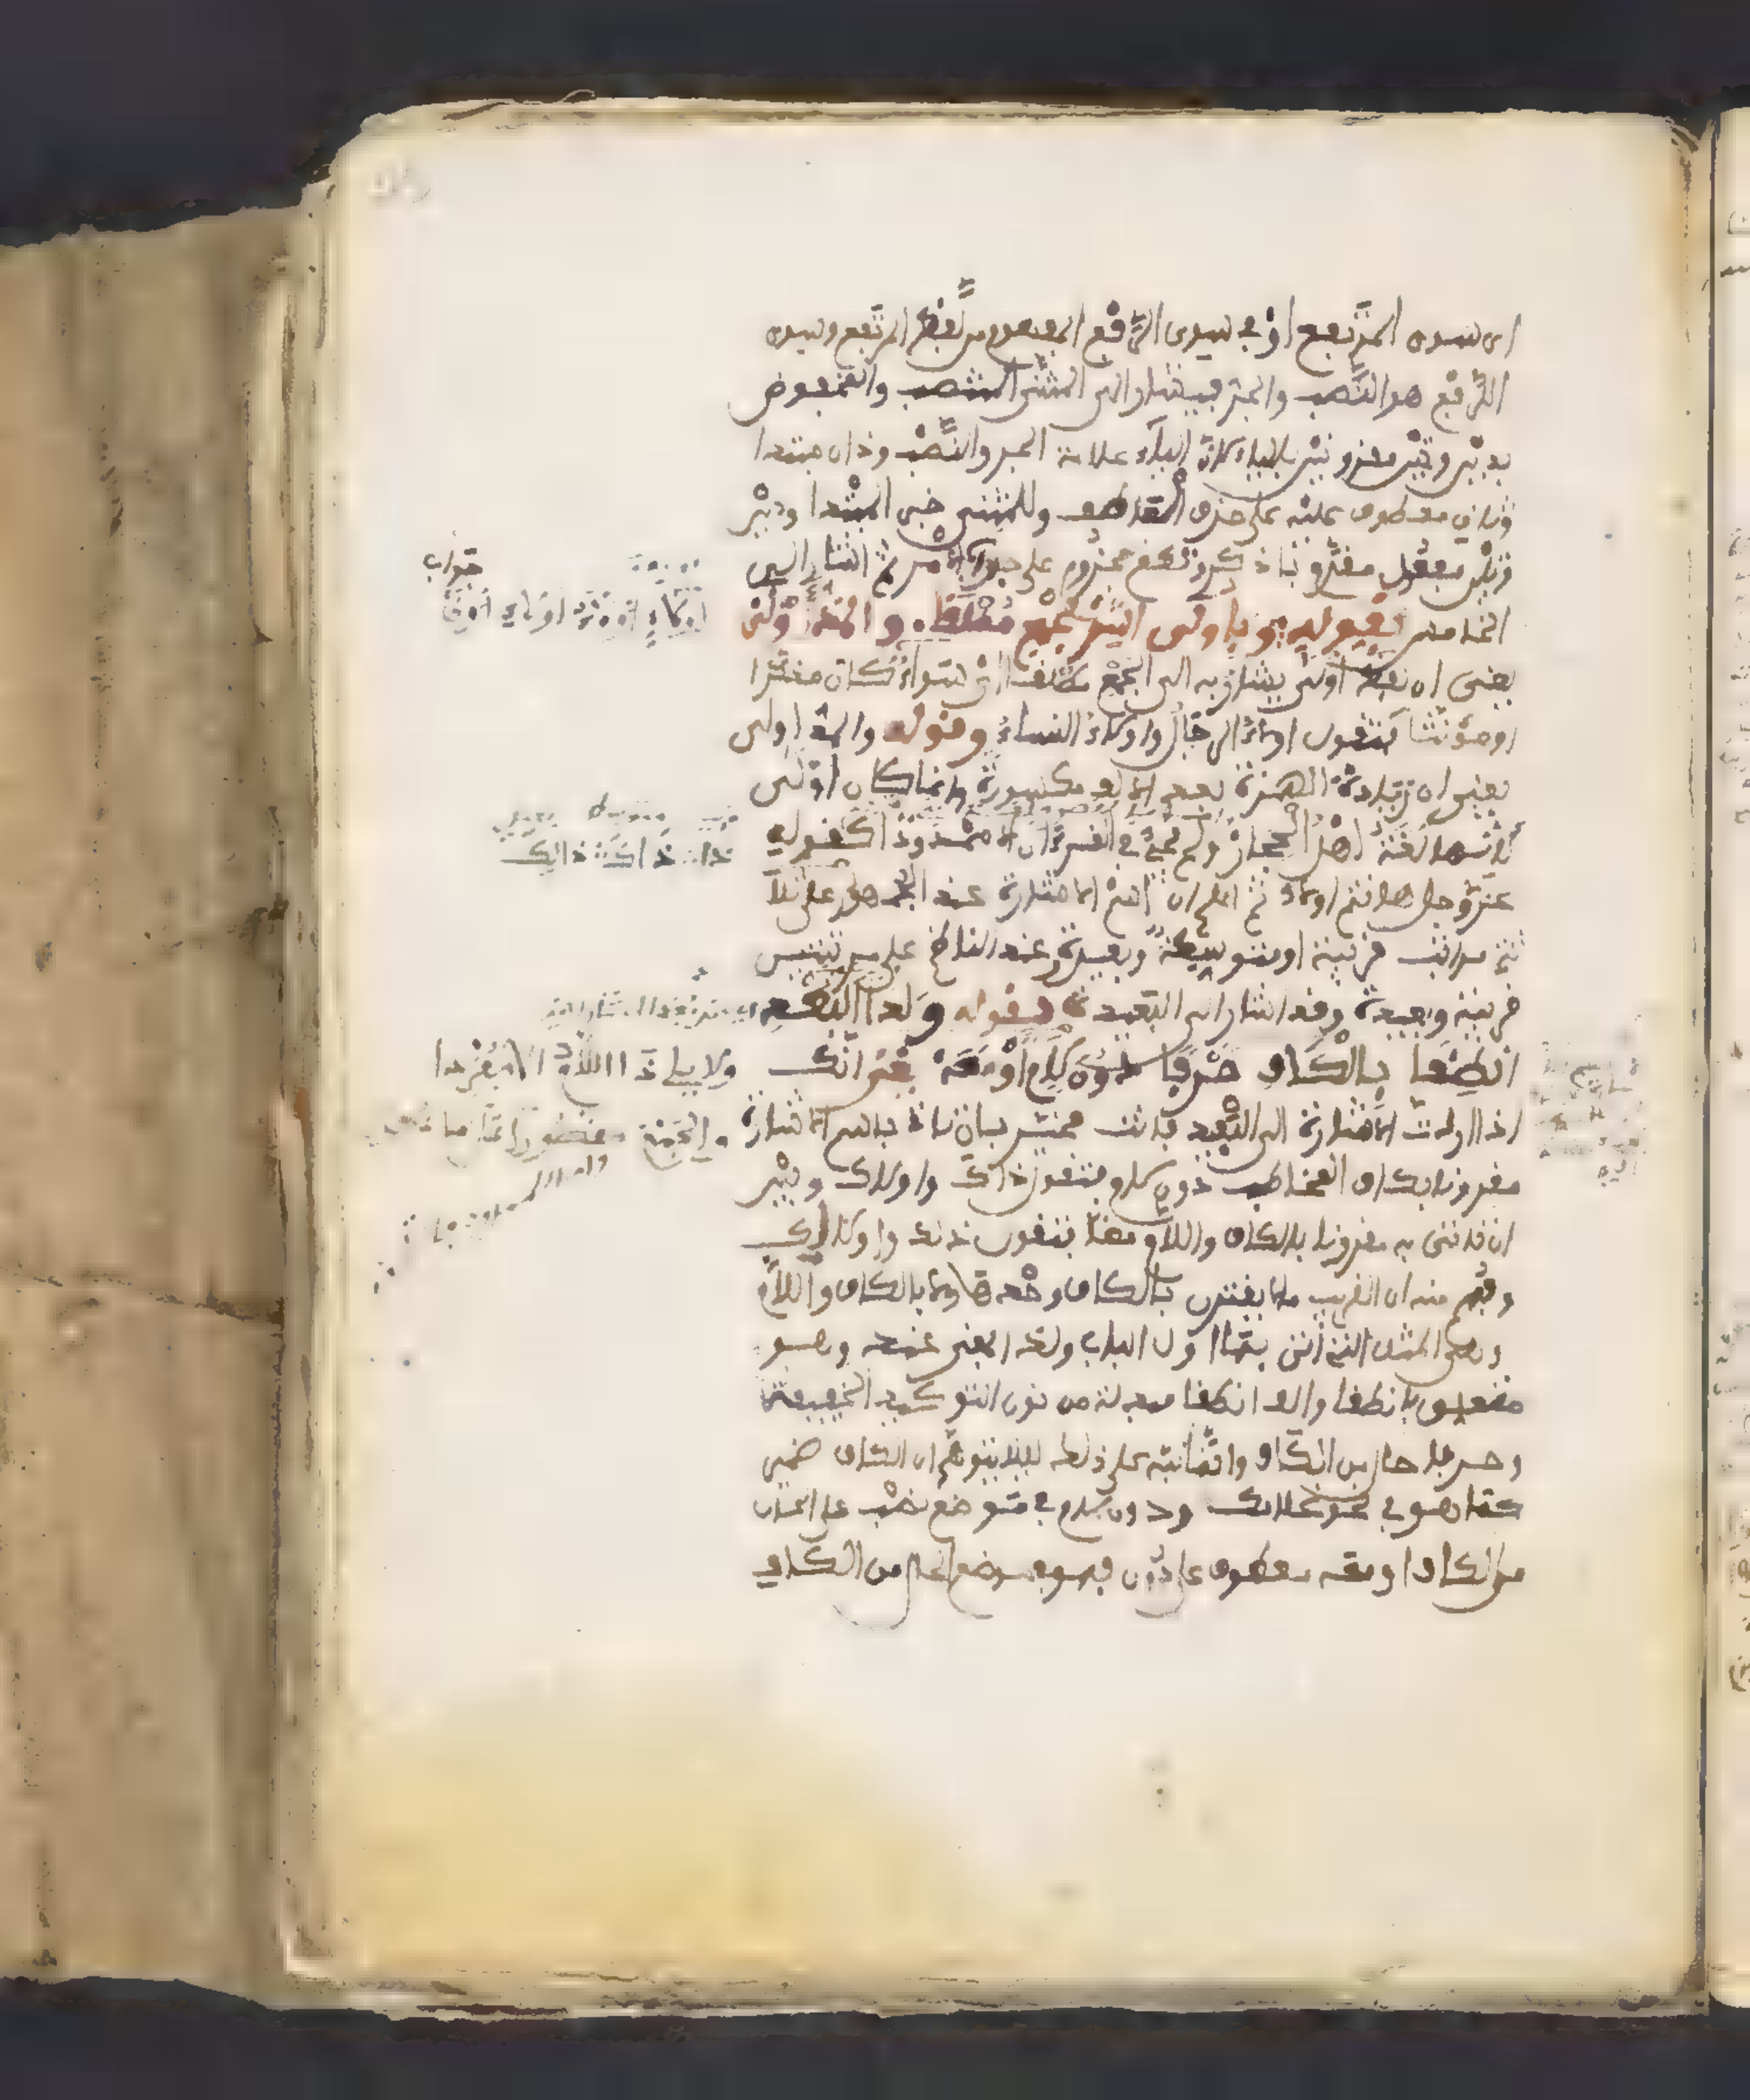 اي سوى المرتفع او في سوى الرفع المفهوم من لفظ المرتفع وسوى
الرفع هو النصب والجر فيشار الى المثنى المنتصب والمخفوض
بذين وتين مقرونين بالياء لان الياء علامة الجر والنصب وذان مبتدا
وتان معطوف عليه على حذف العاطف وللمثنى خبر المبتدا وذين
وتين مفعول مقدم باذكر وتطع مجزوم على جواب الامر ثم اشار الى
الخامس بقوله وباولى اشر لجمع مطلقا والمد اولى
يعني ان لفظ اولى يشار به الى الجمع مطلقا اي سواء كان مذكرا
او مؤنثا فتقول اولاء الرجال واولاء النساء وقوله والمد اولى
يعني ان زيادة الهمزة بعد الالف مكسورة وانما كان اولى
لانها لغة اهل الحجاز ولم يجئ في القرءان الا ممدودا كقوله
عز وجل هانتم اولاء ثم اعلم ان اسم الاشارة عند الجمهور على ثلا
ثة مراتب قريبة او متوسطة وبعيدة وعند الناظم على مرتبتين
قريبة وبعيدة وقد اشار الى البعيدة بقوله ولدا البعد
انطقا بالكاف حرفا دون لام او معه يعني انك
اذا اردت الاشارة الى البعيد فانت مخير بان تاتي باسم الاشارة
مقرونا بكاف الخطاب دون لام فتقول ذاك واولاك وبين
ان تاتي به مقرونا بالكاف واللام معا فتقول ذلك واولالك
وفهم منه ان القريب لا يقترن بالكاف وحدها ولا بالكاف واللام
وهي المثل التي اتى بها اول الباب ولدى بمعنى عند وهو
متعلق بانطقا والف انطقا مبدلة من نون التوكيد الخفيفة
وحرفا حال من الكاف وانما نبه على ذلك لئلا يتوهم ان الكاف ضمير
كما هو في نحو غلامك ودون لام في موضع نصب على الحال
من الكاف او معه معطوف على دون فهو في موضع الحال من الكاف
جواب
ذان ذاك ذالك
ولا يلي ذا اللام الا مفردا